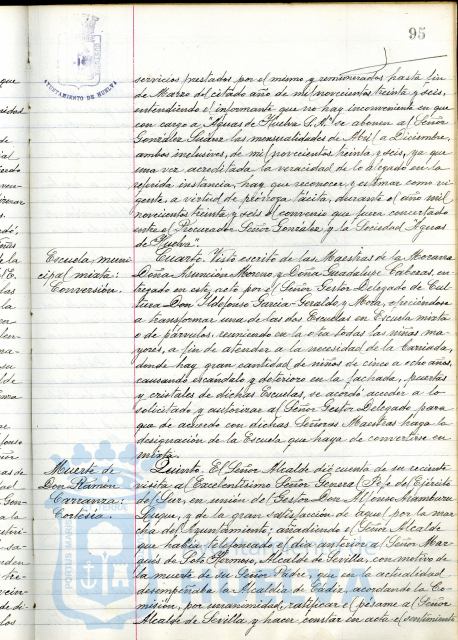 95
AYUNTAMIENTO DE HUELVA
servicios prestados por el mismo y remunerados hasta fin
de Marzo del citado año de mil novecientos treinta y seis,
entendiendo el informante que no hay inconveniente en que
con cargo a "Aguas de Huelva S.A." se abonen al Señor
González Suárez las mensualidades de Abril a Diciembre,
ambos inclusives, de mil novecientos treinta y seis, ya que
una vez acreditada la veracidad de lo alegado en la
referida instancia, hay que reconocer y estimar como vi-
gente, a virtud de prórroga tácita, durante el año mil
novecientos treinta y seis el convenio que fuera concertado
entre el Procurador Señor González y la Sociedad Aguas
de Huelva".
Escuela muni-
cipal mixta:
Conversión.
Cuarto. Visto escrito de las Maestras de la Morana
Doña Asunción Moreno y Doña Guadalupe Taberas, en-
tregado en este acto por el Señor Gestor Delegado de Cul-
tura Don Ildefonso García-Geraldo y Mora, ofreciéndose
a transformar una de las dos Escuelas en Escuela mixta
o de párvulos, reuniendo en la otra todas las niñas ma-
yores, a fin de atender a la necesidad de la barriada,
donde hay gran cantidad de niños de cinco a ocho años,
causando escándalo y deterioro en la fachada, puertas
y cristales de dichas Escuelas, se acordó acceder a lo
solicitado y autorizar al Señor Gestor Delegado para
que de acuerdo con dichas Señoras Maestras haga la
designación de la Escuela que haya de convertirse en
mixta.
Muerte de
Don Ramón
Carranza:
Cortesía.
Quinto. El Señor Alcalde dió cuenta de su reciente
visita al Excelentísimo Señor General Jefe del Ejército
del Sur, en unión del Gestor Don Alfonso Mamburu
Luque, y de la gran satisfacción de aquel por la mar-
cha del Ayuntamiento; añadiendo el Señor Alcalde
que había telefoneado el día anterior al Señor Mar-
qués de Soto Hermoso, Alcalde de Sevilla, con motivo de
la muerte de su Señor Padre, que en la actualidad
desempeñaba la Alcaldía de Cádiz, acordando la Co-
misión, por unanimidad, ratificar el pésame al Señor
Alcalde de Sevilla y hacer constar en acta el sentimiento